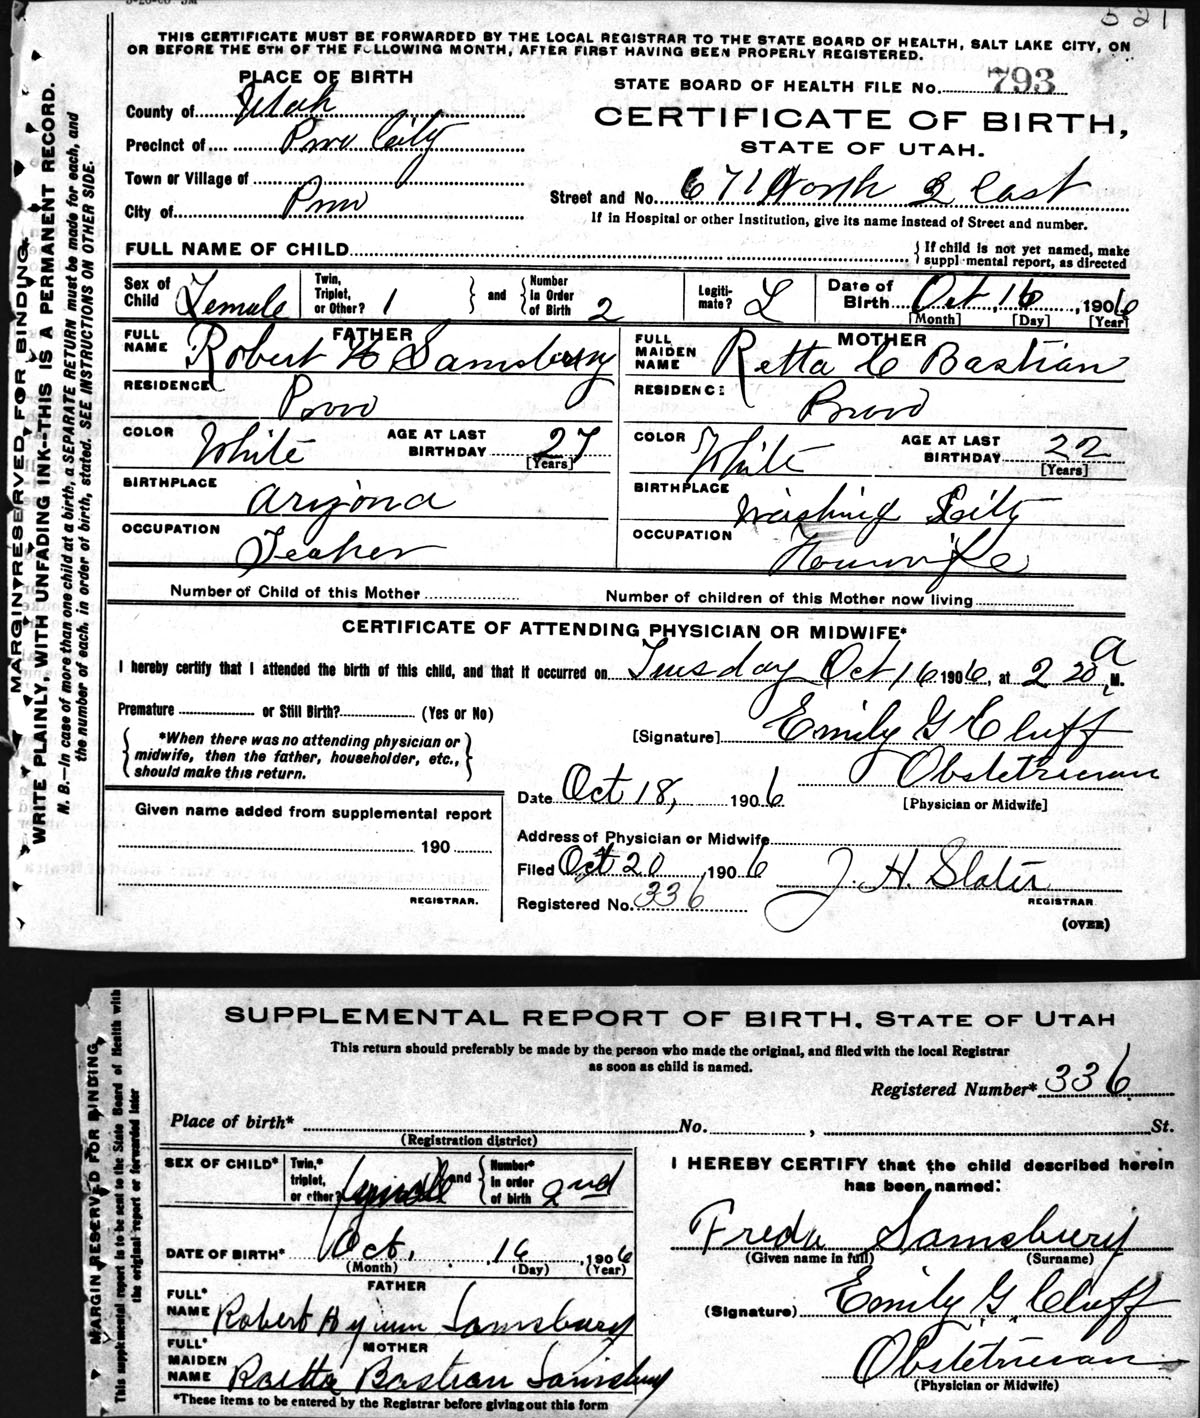 521
THIS CERTIFICATE MUST BE FORWARDED BY THE LOCAL REGISTRAR TO THE STATE BOARD OF HEALTH, SALT LAKE CITY, ON
OR BEFORE THE 5TH OF THE FOLLOWING MONTH, AFTER FIRST HAVING BEEN PROPERLY REGISTERED.
MARGIN RESERVED FOR BINDING
WRITE PLAINLY, WITH UNFADING INK--THIS IS A PERMANENT RECORD.
N. B.—In case of more than one child at a birth, a SEPARATE RETURN must be made for each, and
the number of each, in order of birth, stated. SEE INSTRUCTIONS ON OTHER SIDE.
PLACE OF BIRTH
County of Utah
Precinct of Provo City
Town or Village of
City of Provo
STATE BOARD OF HEALTH FILE No. 793
CERTIFICATE OF BIRTH,
STATE OF UTAH.
Street and No. 671 North 2 East
If in Hospital or other Institution, give its name instead of Street and number.
FULL NAME OF CHILD
If child is not yet named, make
supplemental report, as directed
Sex of Child Female
Twin, Triplet, or Other? 1
and
Number in Order of Birth 2
Legitimate? L
Date of Birth Oct, 16, 1906
[Month] [Day] [Year]
FATHER
FULL NAME Robert H Samsbury
RESIDENCE Provo
COLOR White
AGE AT LAST BIRTHDAY 27
[Years]
BIRTHPLACE Arizona
OCCUPATION Teacher
MOTHER
FULL MAIDEN NAME Retta C Bastian
RESIDENCE Provo
COLOR White
AGE AT LAST BIRTHDAY 22
[Years]
BIRTHPLACE Washing City
OCCUPATION Housewife
Number of Child of this Mother
Number of children of this Mother now living
CERTIFICATE OF ATTENDING PHYSICIAN OR MIDWIFE*
I hereby certify that I attended the birth of this child, and that it occurred on Tuesday Oct 16 1906, at 2 20 A M.
Premature or Still Birth? (Yes or No)
*When there was no attending physician or
midwife, then the father, householder, etc.,
should make this return.
[Signature] Emily G Cluff
Obstetrician
[Physician or Midwife]
Date Oct 18, 1906
Given name added from supplemental report
190
REGISTRAR.
Address of Physician or Midwife
Filed Oct 20, 1906
J. H. Slater
REGISTRAR
Registered No. 336
(OVER)
MARGIN RESERVED FOR BINDING
This supplemental report is to be sent to the State Board of Health with
the original report or forwarded later
SUPPLEMENTAL REPORT OF BIRTH, STATE OF UTAH
This return should preferably be made by the person who made the original, and filed with the local Registrar
as soon as child is named.
Registered Number* 336
Place of birth* No. , St.
(Registration district)
SEX OF CHILD*
Twin,* triplet, or other
and
Number* in order of birth 2nd
DATE OF BIRTH* Oct, 16, 1906
(Month) (Day) (Year)
FATHER
FULL* NAME Robert Hyrum Samsbury
MOTHER
FULL* MAIDEN NAME Raetta Bastian Samsbury
*These items to be entered by the Registrar before giving out this form
I HEREBY CERTIFY that the child described herein
has been named:
Freda Samsbury
(Given name in full) (Surname)
(Signature) Emily G. Cluff
Obstetrician
(Physician or Midwife)